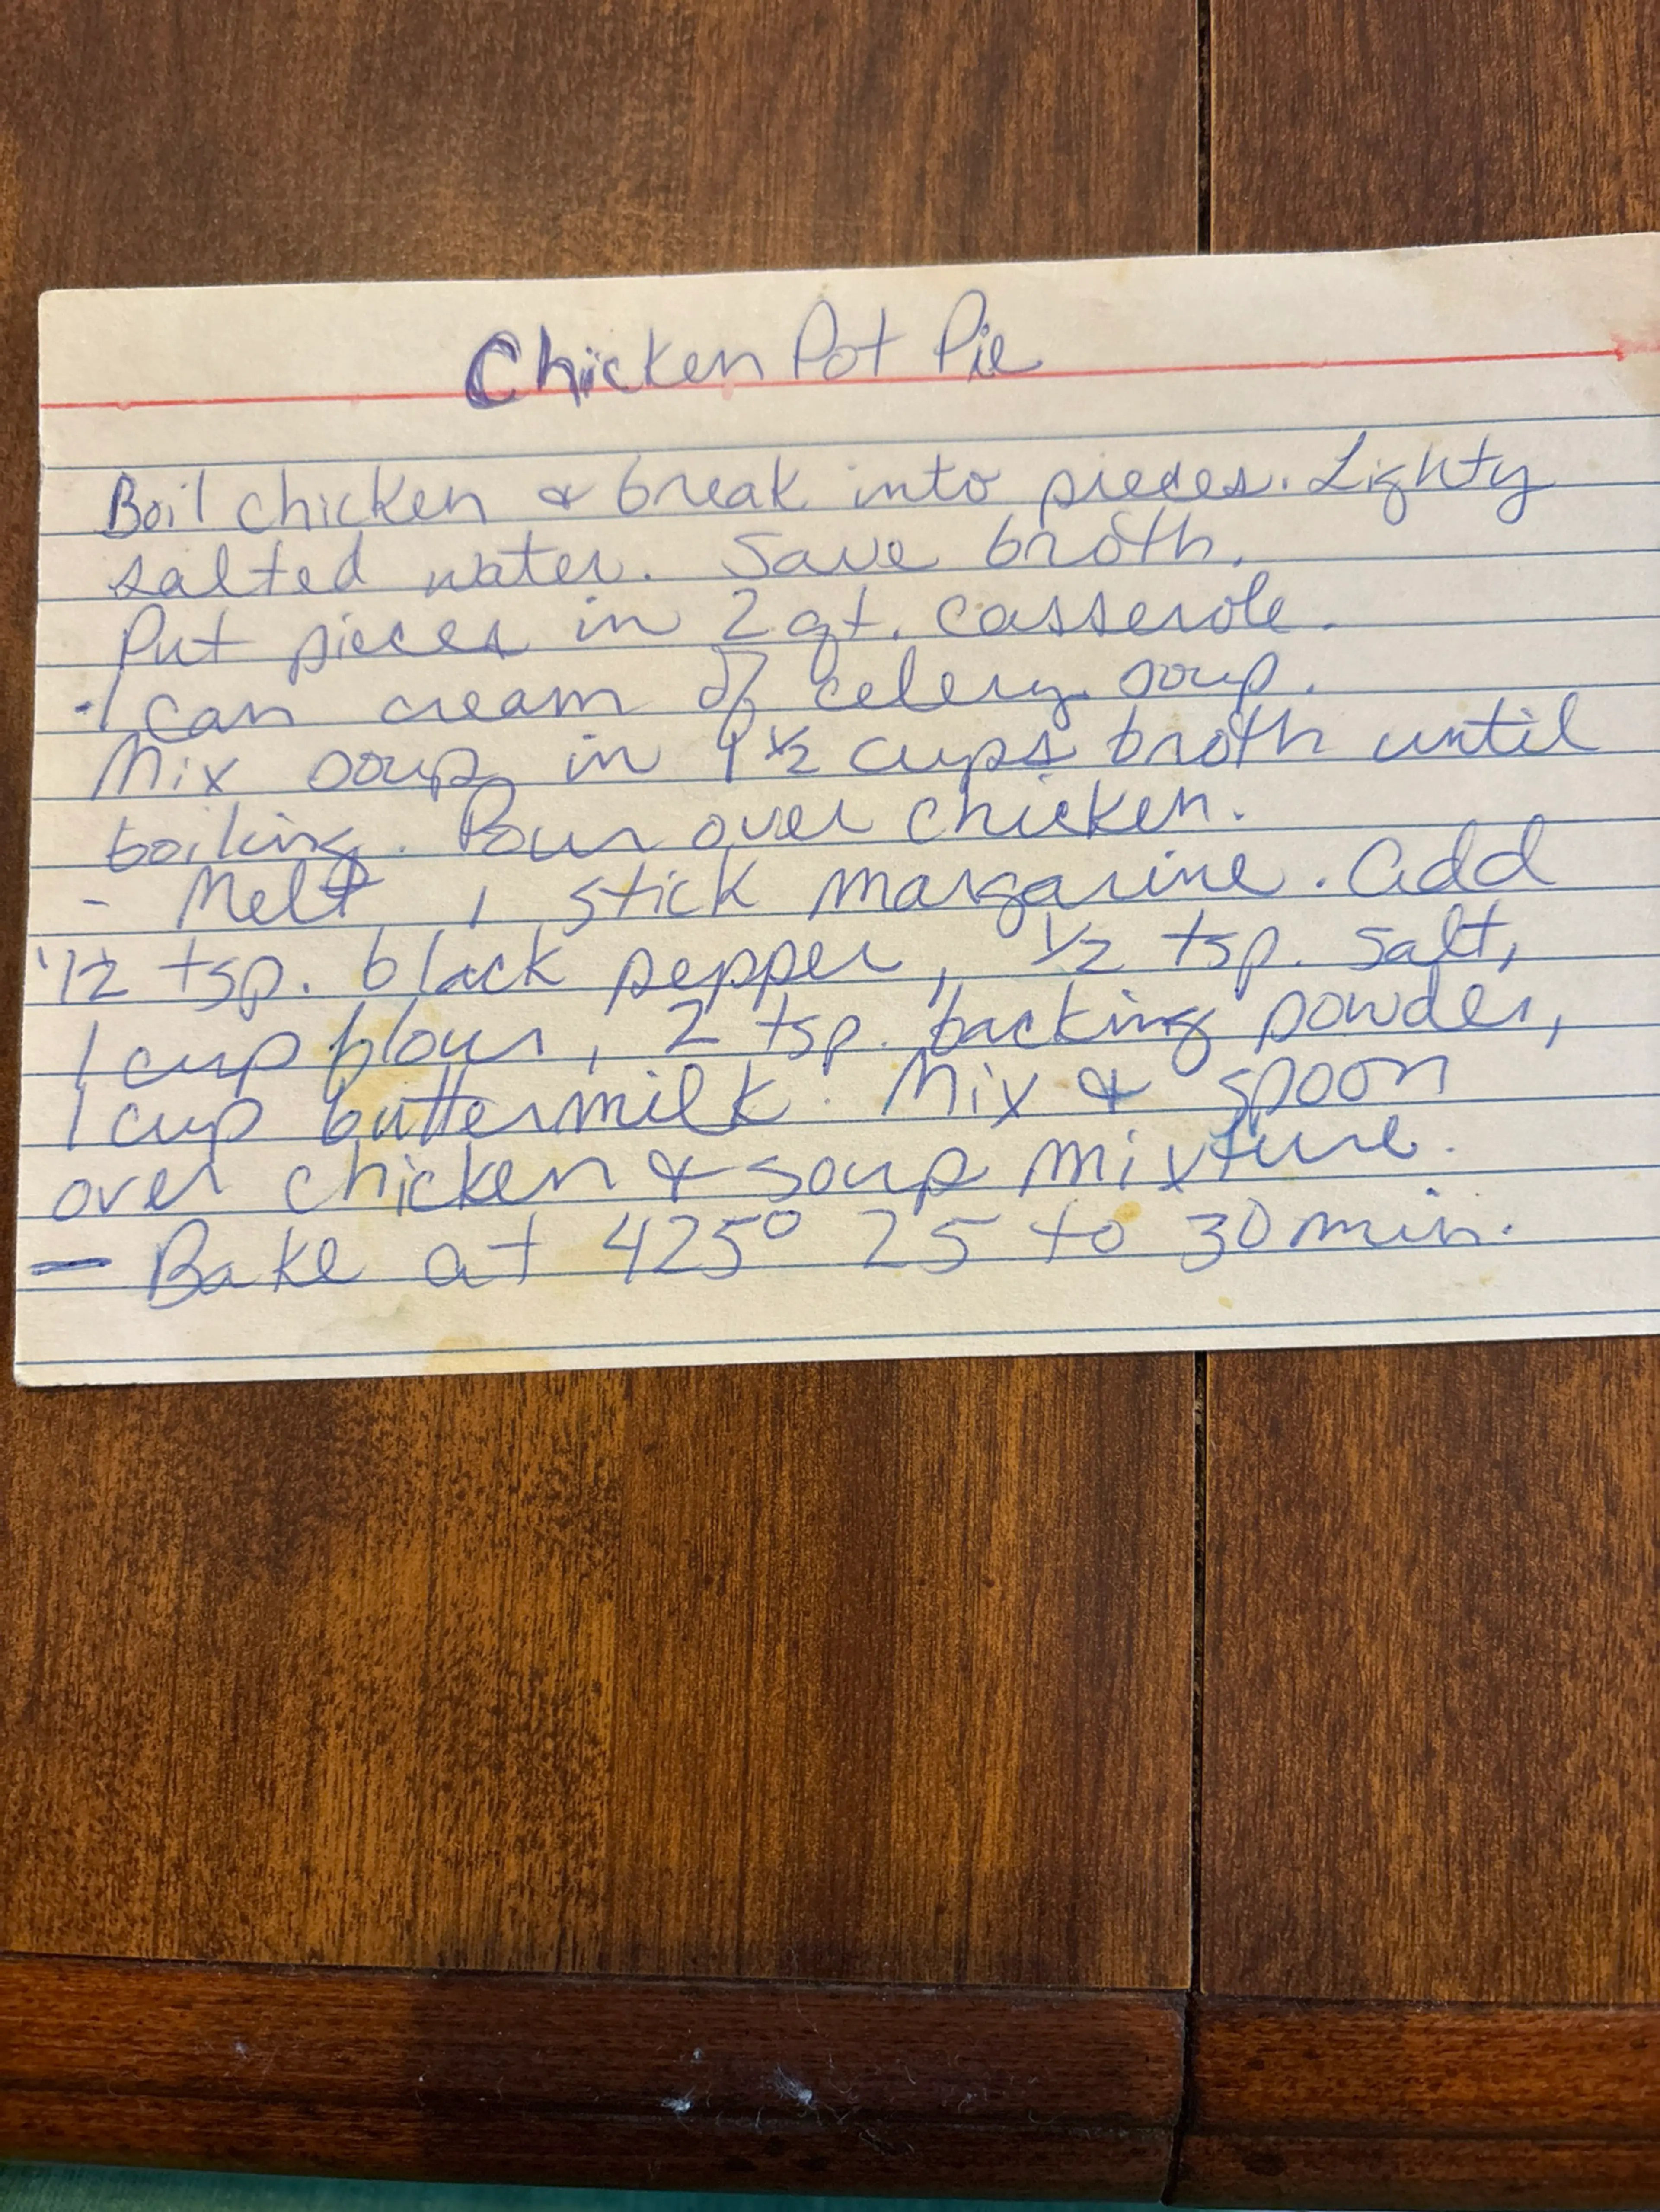 Chicken Pot Pie
Boil chicken & break into pieces. Lighty
salted water. Save broth.
Put pieces in 2 qt. casserole.
- 1 can cream of celery soup.
Mix soup in 1 1/2 cups broth until
boiling. Pour over chicken.
- Melt 1 stick margarine. Add
1/2 tsp. black pepper, 1/2 tsp. salt,
1 cup flour, 2 tsp. backing powder,
1 cup buttermilk. Mix & spoon
over chicken & soup mixture.
- Bake at 425° 25 to 30 min.